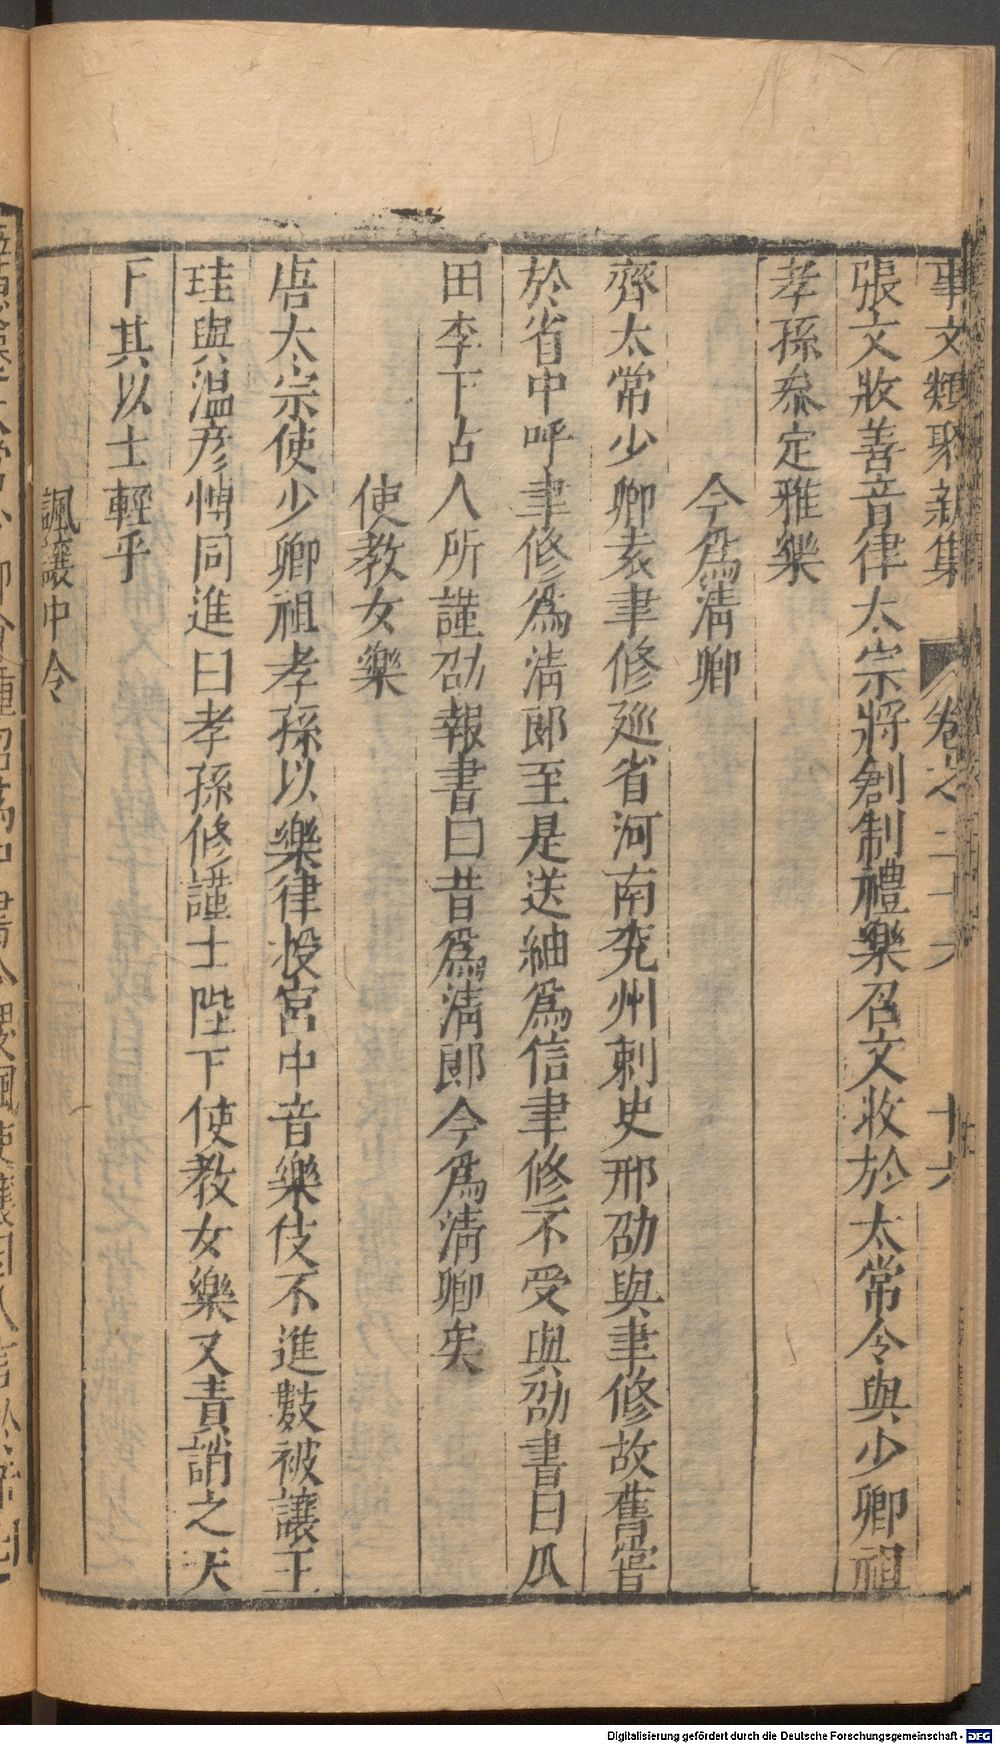 事文類聚新集 卷之二十六 十六
張文收善音律太宗將創制禮樂召文收於太常令與少卿祖
孝孫叅定雅樂
今爲清卿
齊太常少卿袁聿修廵省河南兖州刺史邢劭與聿修故舊嘗
於省中呼聿修爲清郎至是送紬爲信聿修不受與劭書曰瓜
田李下古人所謹劭報書曰昔爲清郎今爲清卿矣
使教女樂
唐太宗使少卿祖孝孫以樂律授宮中音樂伎不進數被讓王
珪與温彦博同進曰孝孫修謹士陛下使教女樂又責誚之天
下其以士輕乎
諷讓中令
Digitalisierung gefördert durch die Deutsche Forschungsgemeinschaft - DFG